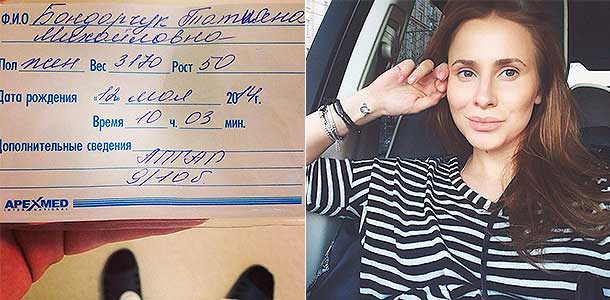 Ф.И.О Бондарчук Татьяна
Михайловна
Пол жен Вес 3170 Рост 50
Дата рождения «12» мая 2014г.
Время 10 ч. 03 мин.
Дополнительные сведения
АПГАР
9/10б.
APEXMED
INTERNATIONAL